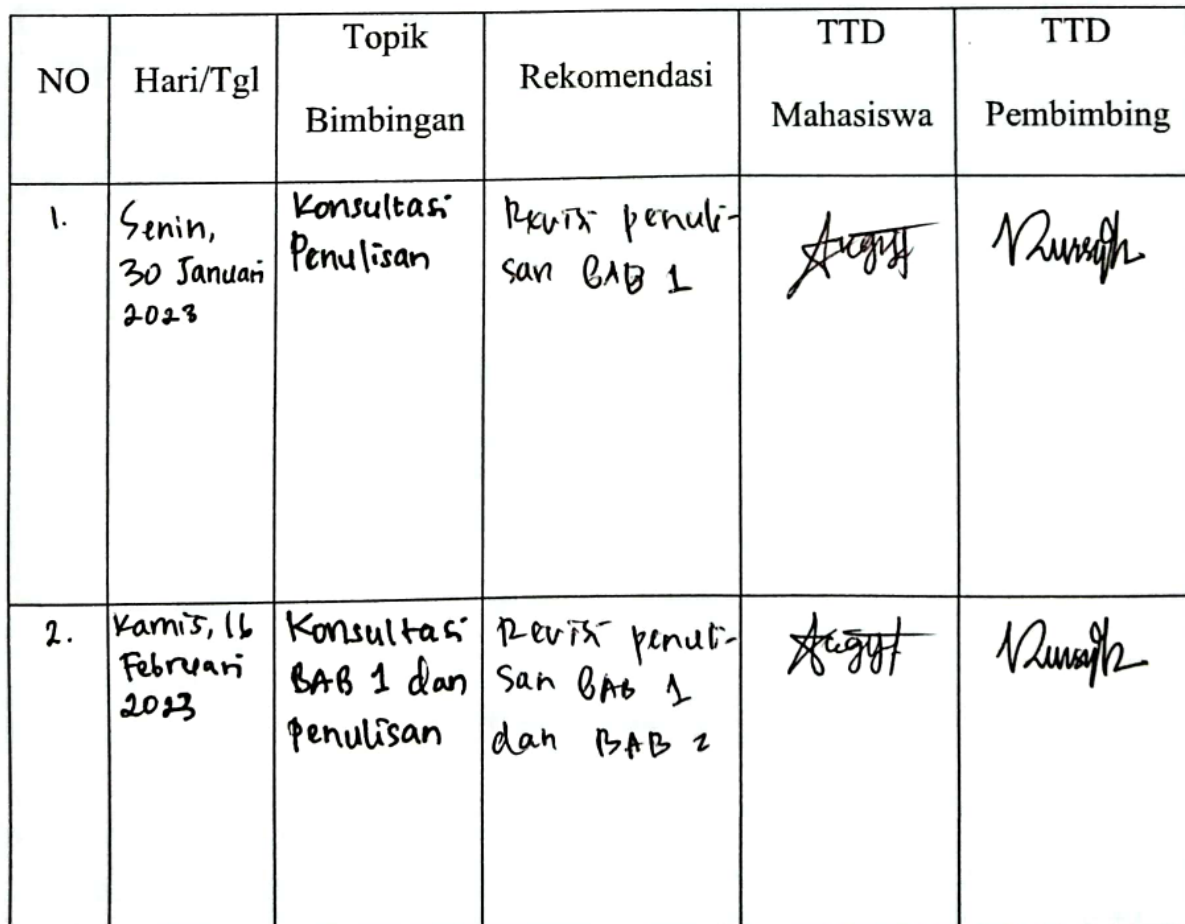 NO
Hari/Tgl
Topik
Bimbingan
Rekomendasi
TTD
Mahasiswa
TTD
Pembimbing
1.
Senin,
30 Januari
2023
Konsultasi
Penulisan
Revisi penuli-
san BAB 1
2.
Kamis, 16
Februari
2023
Konsultasi
BAB 1 dan
penulisan
Revisi penuli-
san BAB 1
dan BAB 2